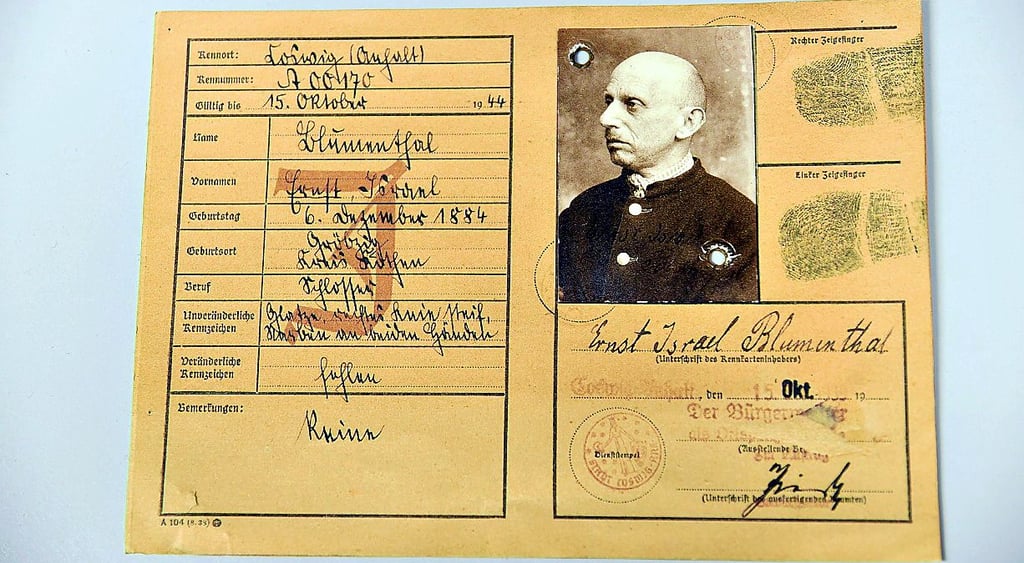 Kennort: Coswig (Anhalt)
Kennummer: A 00170
Gültig bis 15. Oktober 19 44
Name Blumenthal
Vornamen Ernst, Israel
Geburtstag 6. Dezember 1884
Geburtsort Gröbzig
Kreis Köthen
Beruf Schlosser
Unveränderliche Kennzeichen Glatze, rechtes Knie steif,
Narben an beiden Händen
Veränderliche Kennzeichen fehlen
Bemerkungen: Keine
J
A 104 (8. 38)
Rechter Zeigefinger
Linker Zeigefinger
Ernst Israel Blumenthal
(Unterschrift des Kennkarteninhabers)
Coswig-Anhalt, den 15. Okt. 19
Der Bürgermeister
als
(Ausstellende
Dienststempel
(Unterschrift des ausfertigenden Beamten)